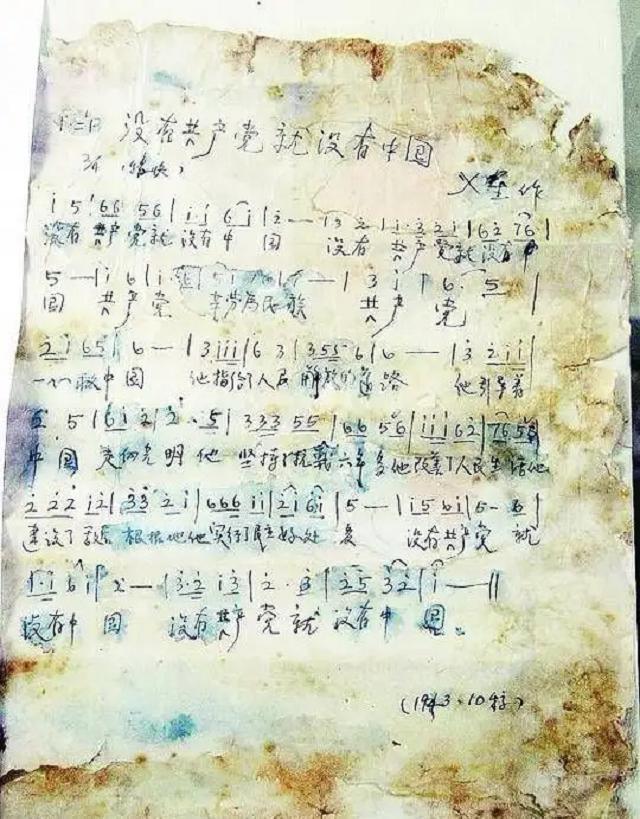 没有共产党就没有中国
作
i 5 66 56 | i i 6 i | 2 — | 3 2 | i·3 2 i | 6 2 76 |
没有 共产党就没有中 国 没有 共产党就没有中
5 — | i 6 | i 3 i | 6· 5 |
国 共产党 辛劳为民族 共产 党
2 i 65 | 6 — | 3 iii | 6 3 | 3 55 6 | 6 — | 3 2 i i |
一心救中国 他指给了人民 解放的道路 他引导着
5 5 | 6 i 2 | 2 · 5 | 333 55 | 66 56 | iii 62 | 76 5
中国 走向光明 他 坚持了抗战六年多他改善了人民生活他
2 22 12 | 33 2 i | 666 ii | 2 i 6 i | 5 — | i 5 6 i | 5 - 6 |
建设了 根据地他实行了民主好处 多 没有共产党 就
i · i 6 i | 2 — | 3·2 i 3 | 2 · 3 | 2 5 3 2 | i — ||
没有中 国 没有共产党就 没有中 国。
3.10